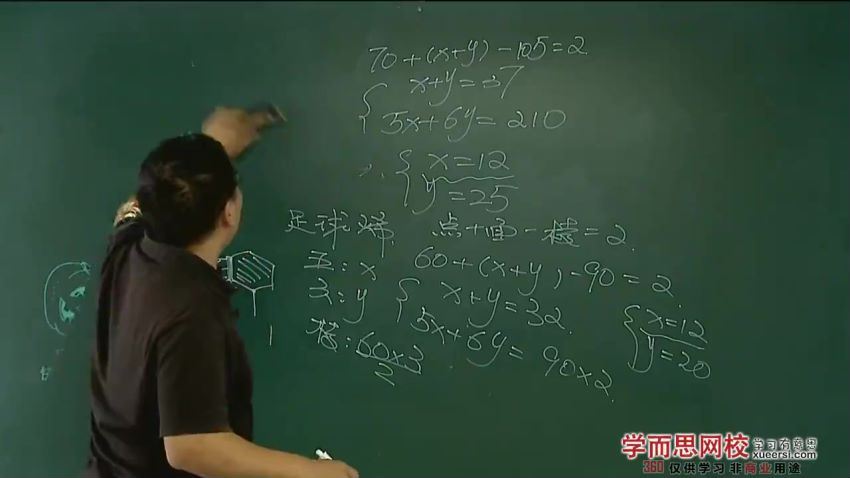 70+(x+y)-105=2
x+y=37
5x+6y=210
∴ x=12
y=25
足球烯 点+面-棱=2
五:x 60+(x+y)-90=2
六:y x+y=32
棱:60×3/2 5x+6y=90×2
x=12
y=20
学而思网校 学习有意思
xueersi.com
360 仅供学习 非商业用途